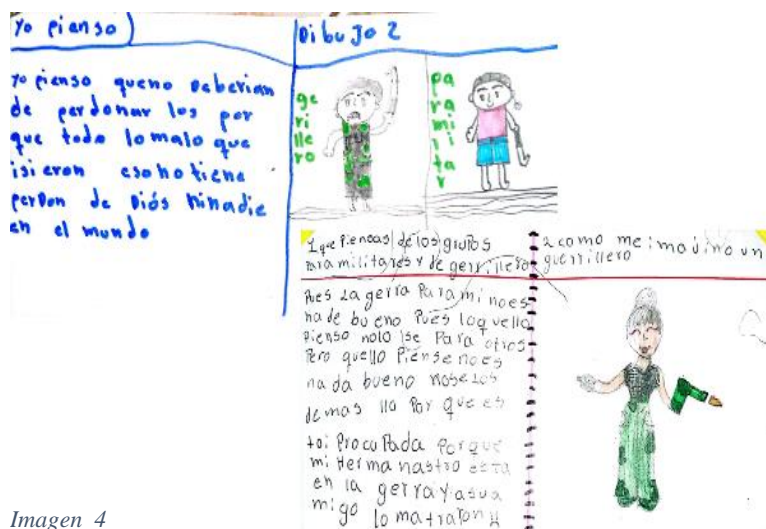 Yo pienso)
yo pienso queno Deberian
de perdonar los por
que todo lo malo que
isieron eso no tiene
perdon de Diós ninadie
en el mundo
Dibujo 2
ge
ri
lle
ro
pa
ra
mi
li
ta
r
1 que Piensas de los grupos
paramilitares y de gerrillero
Pues La gerra Para mi no es
nade bueno Pues loquello
pienso nolo ise Para otros
Pero quello Piense no es
na da bueno nose Los
demas llo Por que es
toi Procupada Porque
mi Hermanastro esta
en la gerra y a su a
migo lo mataron
2 como me imajino un
guerrillero
Imagen 4